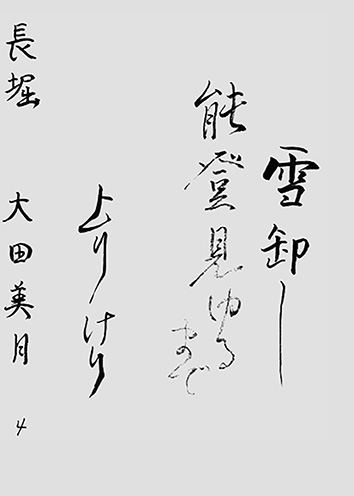 雪卸し
能登見ゆる
まで
上りけり
長堀 大田英月 4